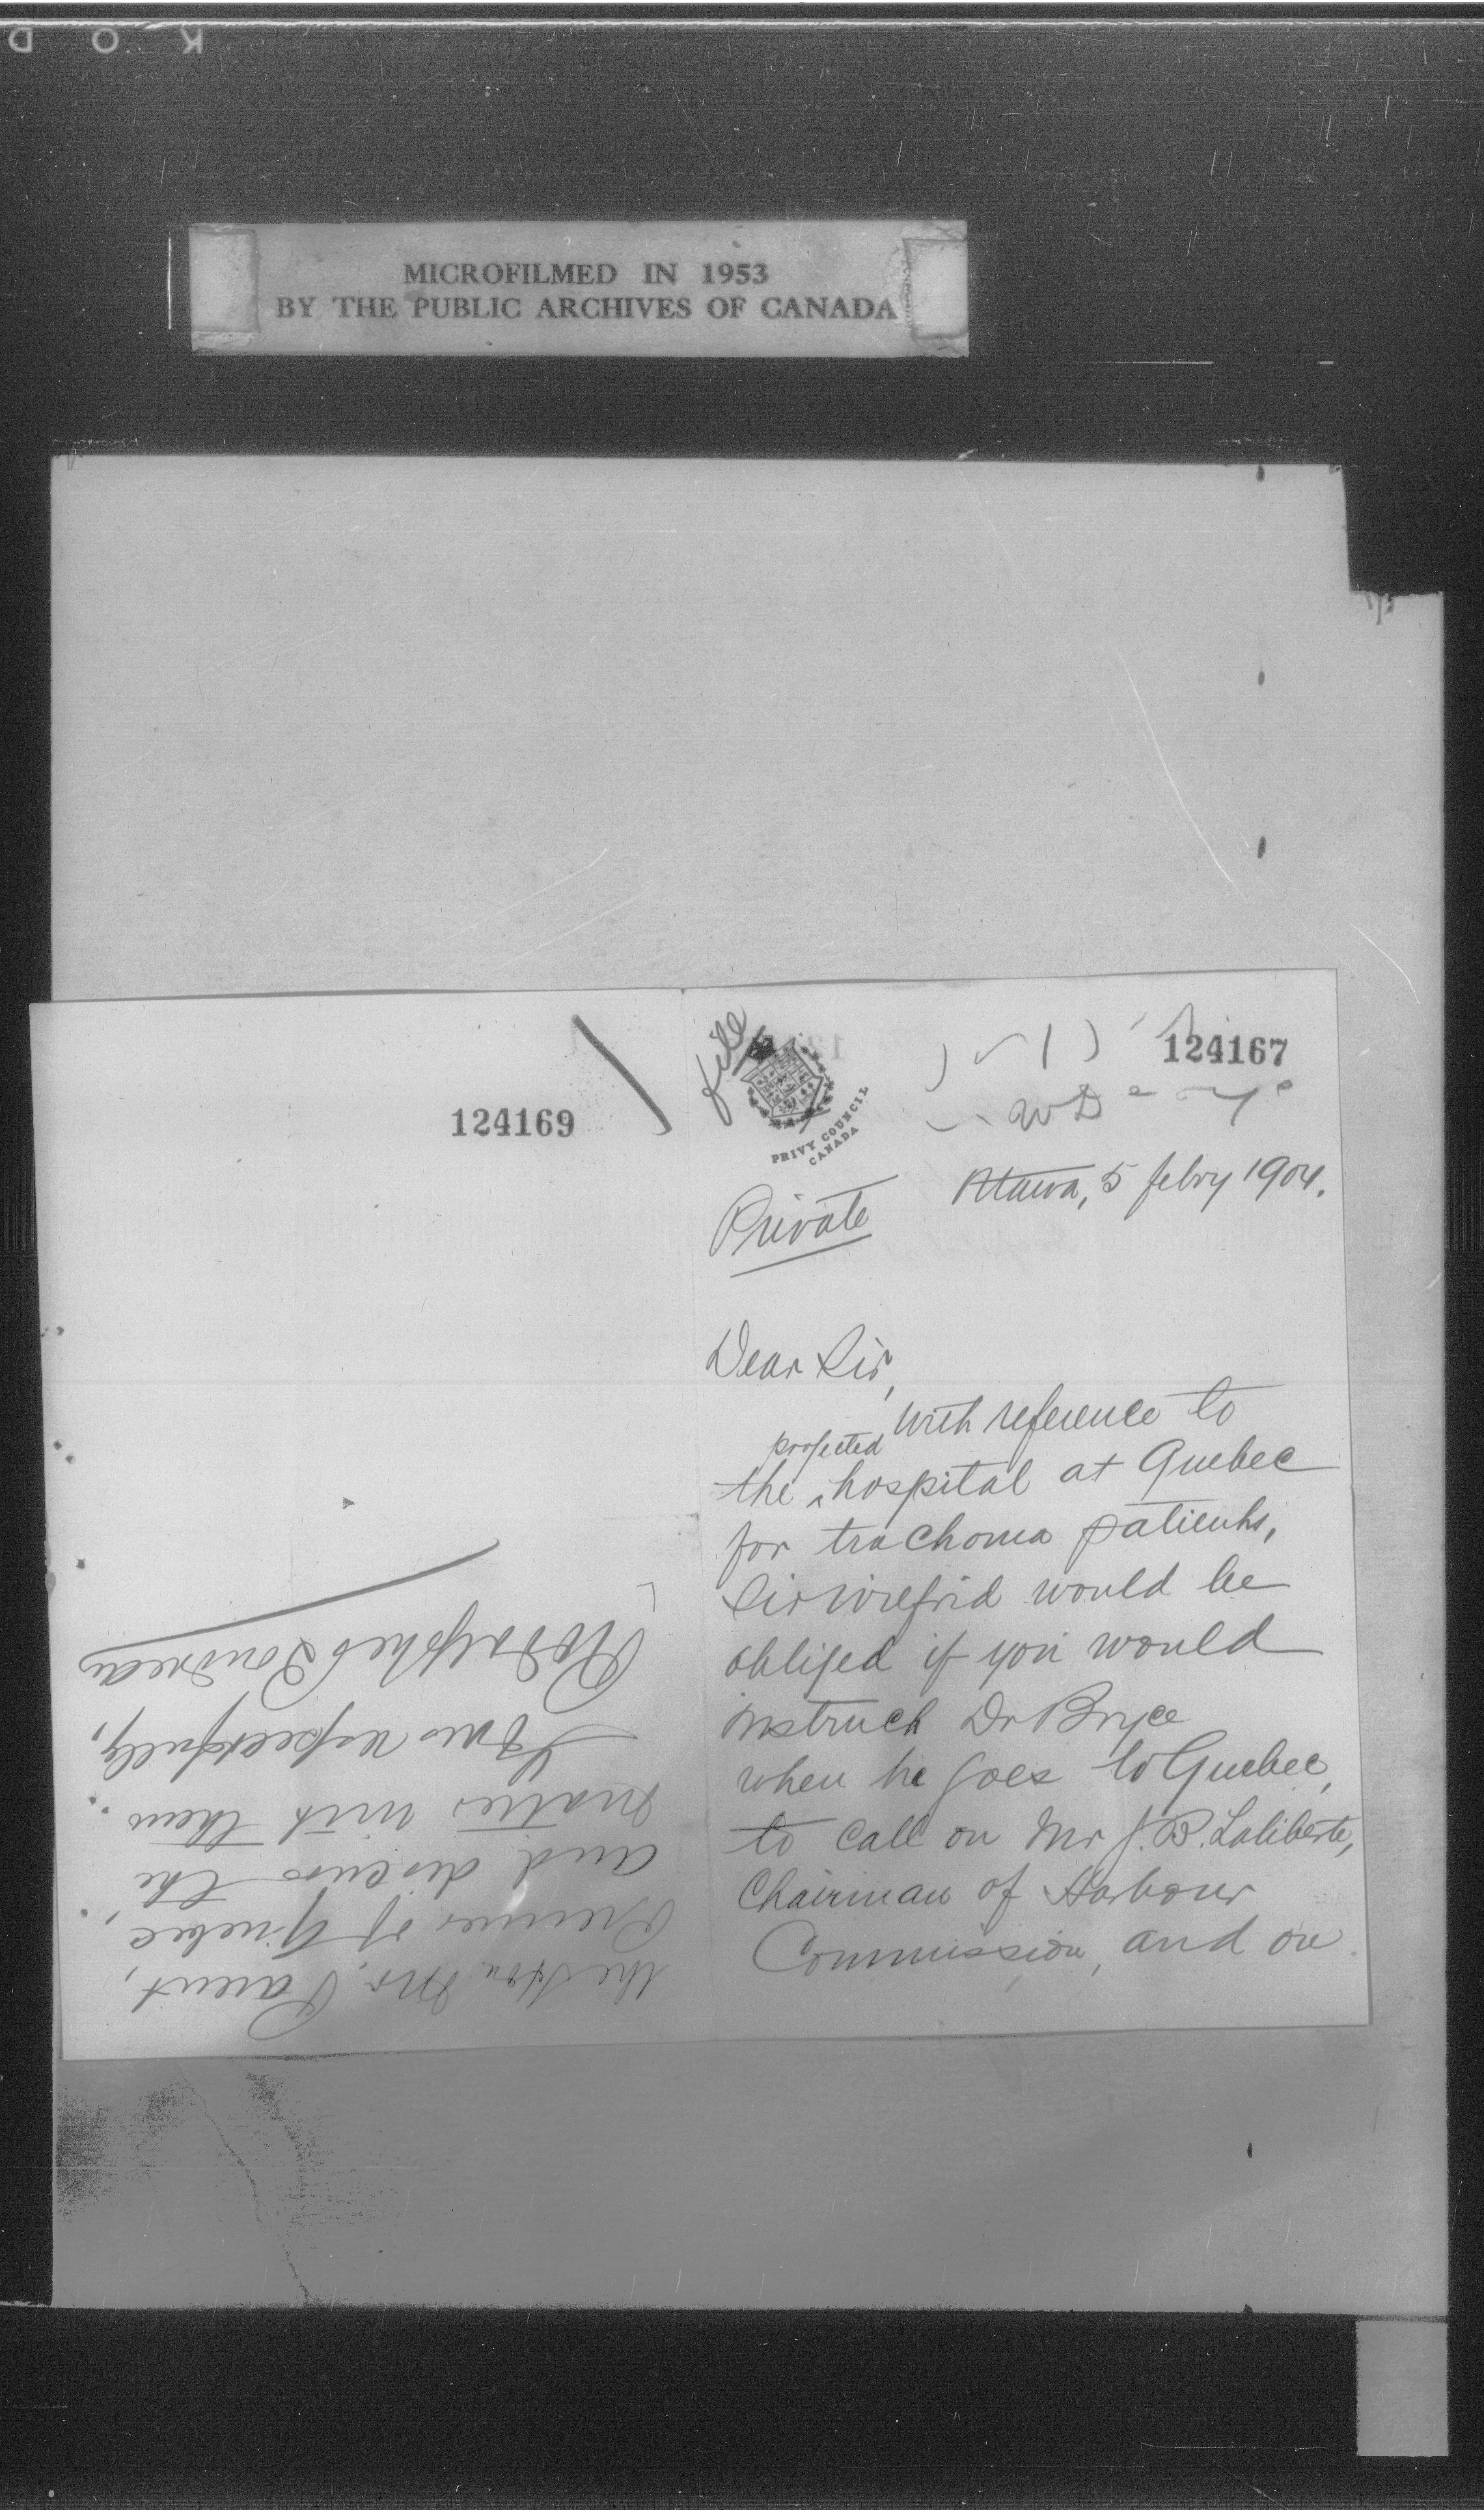 K O D
MICROFILMED IN 1953
BY THE PUBLIC ARCHIVES OF CANADA
124169
file
PRIVY COUNCIL
CANADA
124167
Private
Ottawa, 5 febry 1904.
Dear Sir,
With reference to
projected
the ^ hospital at Quebec
for trachoma patients,
Sir Wilfrid would be
obliged if you would
instruct Dr Bryce
when he goes to Quebec,
to call on Mr J. B. Laliberte,
Chairman of Harbour
Commission, and on
the Hon Mr. Parent,
Premier of Quebec,
and discuss the
matter with them.
Yours respectfully,
Rodolphe Boudreau